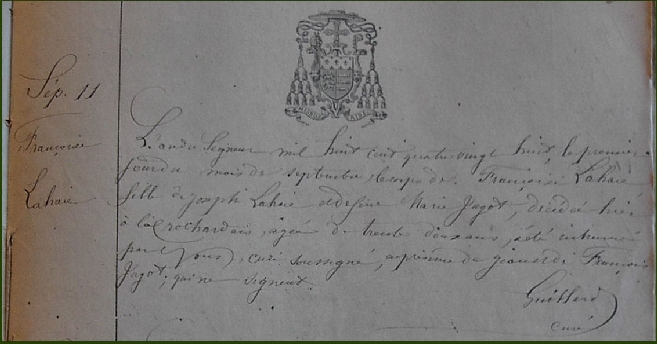 Sép. 11
Françoise
Lahaie
L'an du Seigneur mil huit cent quatre vingt huit, le premier
jour du mois de septembre le corps de Françoise Lahaie
fille de Joseph Lahaie et de feue Marie Jagot, décédée hier
à la Crochardais, âgée de trente deux ans, a été inhumé
par Nous, curé soussigné, en présence du François
Jagot, qui ne signent.
Guillard
curé